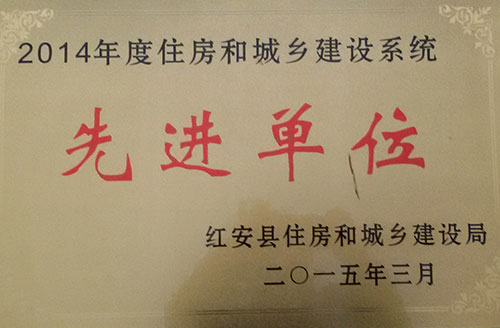 2014年度住房和城乡建设系统
先进单位
红安县住房和城乡建设局
二〇一五年三月